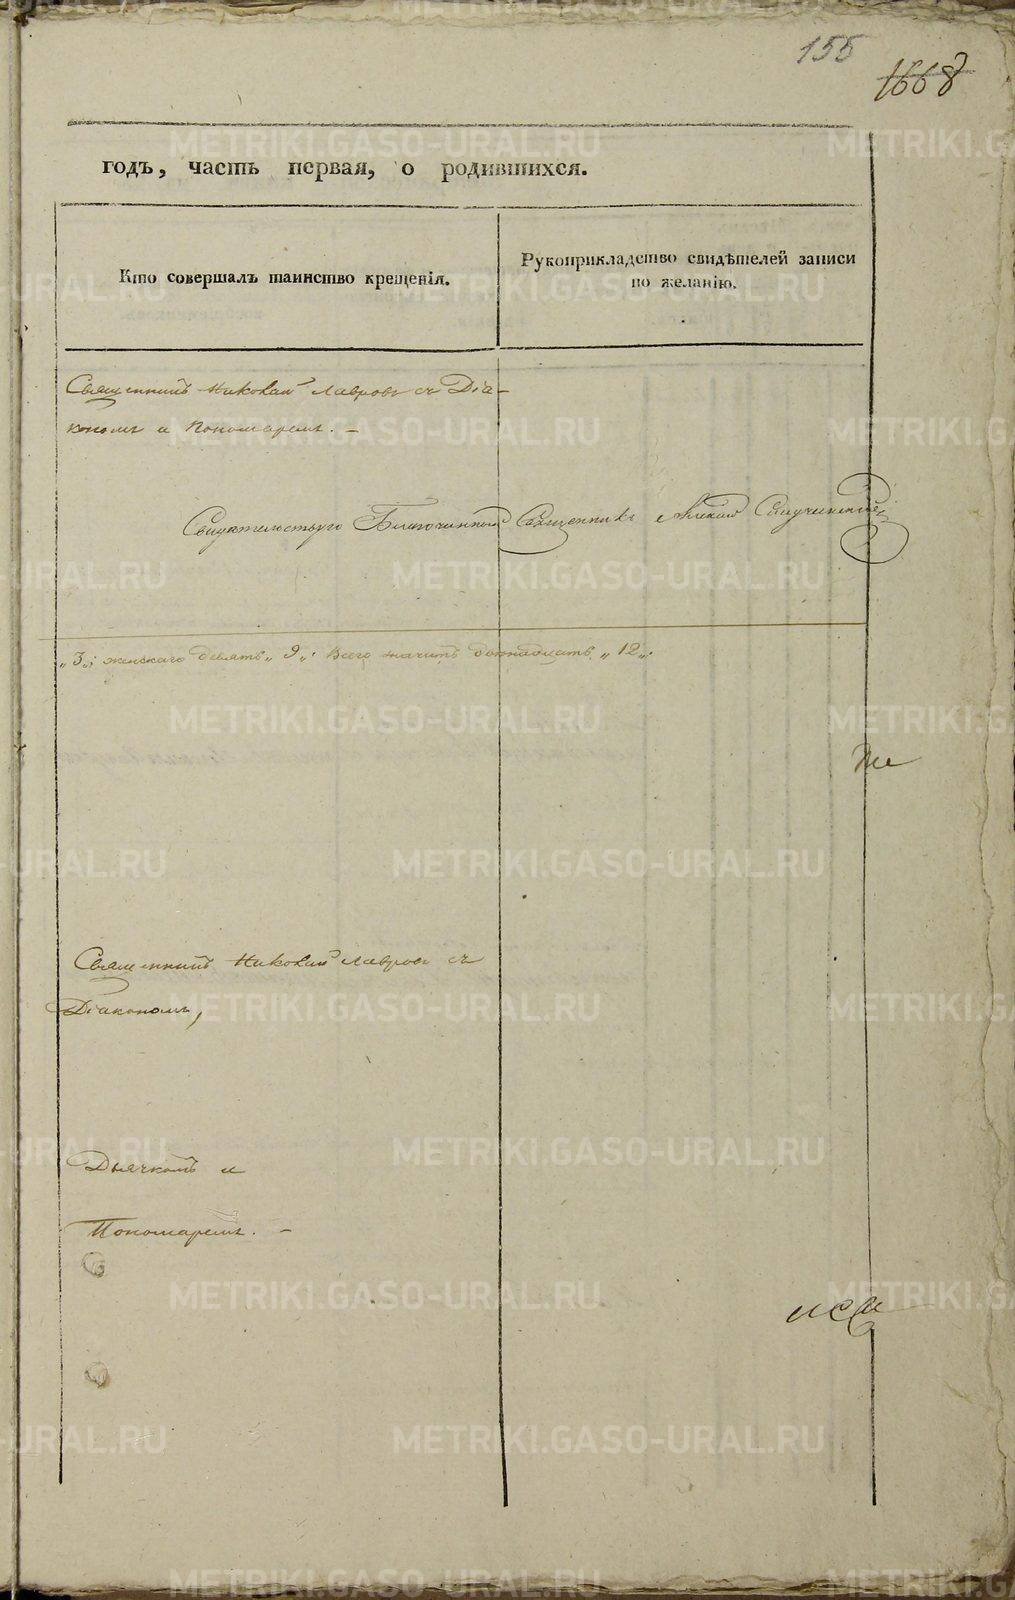 155
1668
годъ, часть первая, о родившихся.
Кто совершалъ таинство крещенія.
Рукоприкладство свидѣтелей записи
по желанію.
Священникъ Николай Лавровъ съ Діа-
кономъ и Пономаремъ. –
Свидѣтельствую Благочинный Священникъ
„3„; женскаго девять „9„. Всего значитъ двѣнадцать „12„.
Священникъ Николай Лавровъ съ
Діакономъ,
Дьячкомъ и
Пономаремъ. –
METRIKI.GASO-URAL.RU